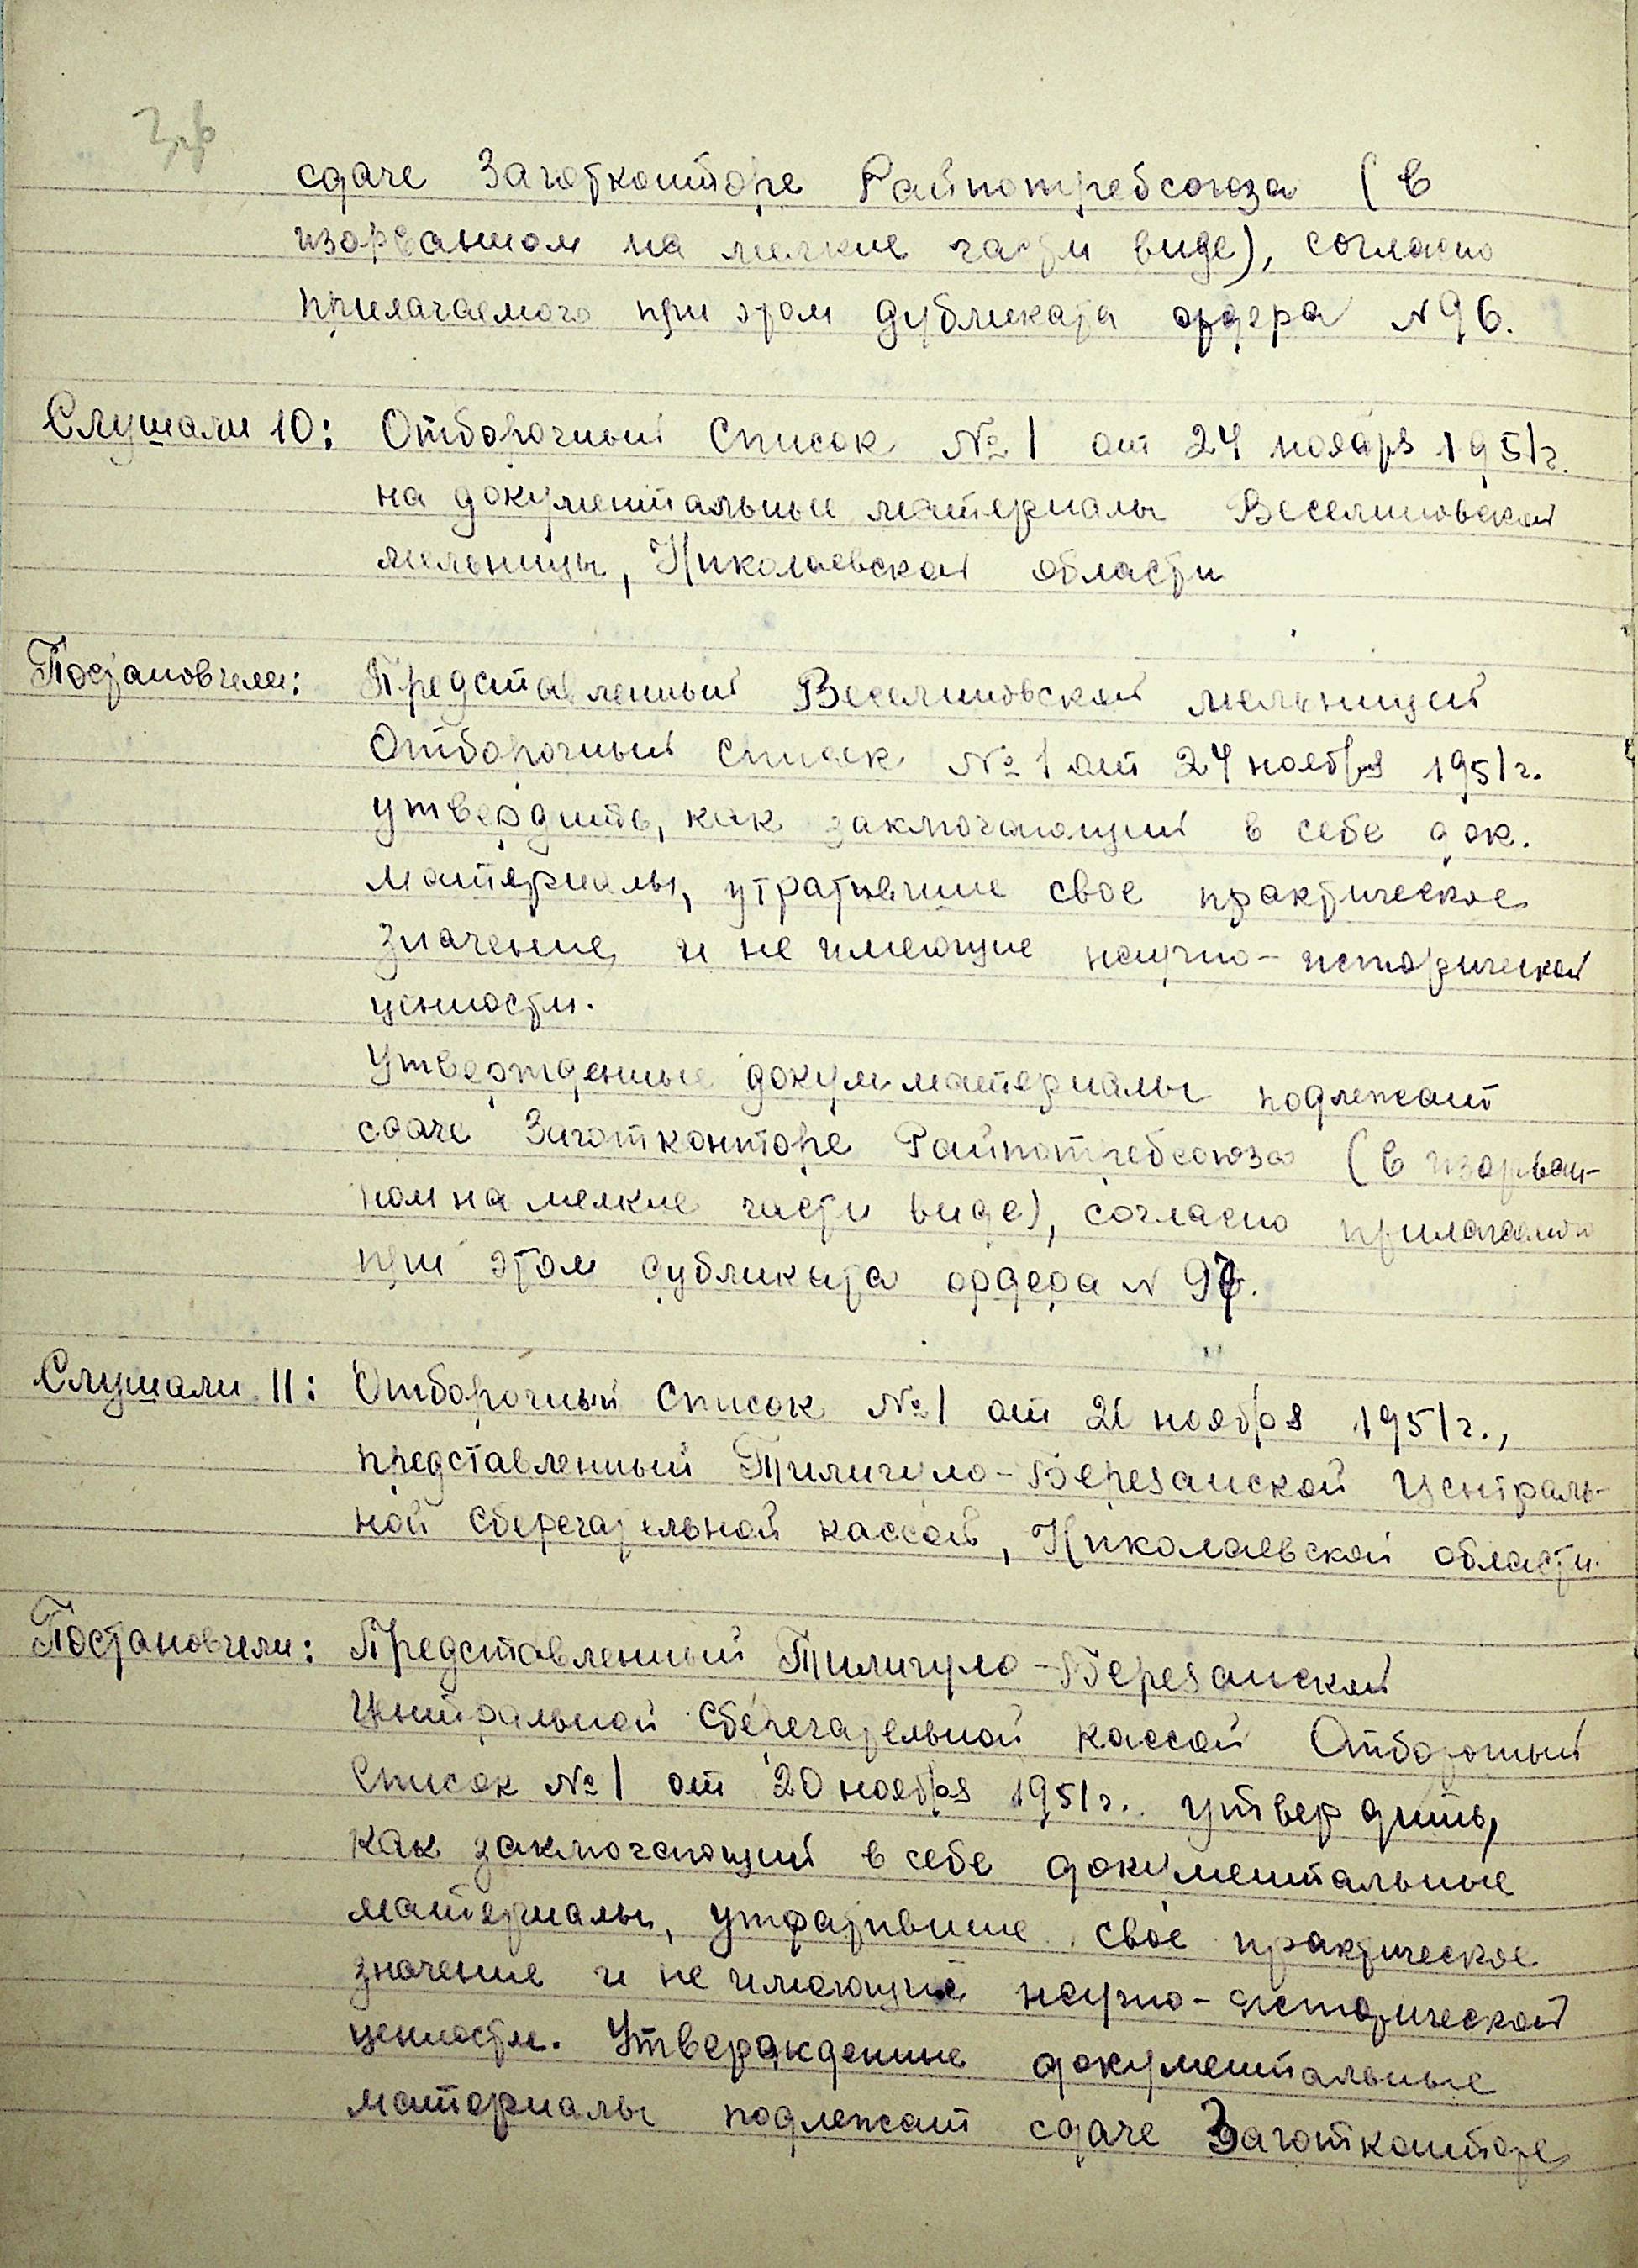 сдаче Заготконторе Райпотребсоюза (в
изорванном на мелкие части виде), согласно
прилагаемого при этом дубликата ордера N 96.
Слушали 10: Отборочный Список №1 от 24 ноября 1951г.
на документальные материалы Веселиновской
мельницы, Николаевской области
Постановили: Представленный Веселиновской мельницей
Отборочный список №1 от 24 ноября 1951г.
утвердить, как заключающий в себе док.
материалы, утратившие свое практическое
значение и не имеющие научно-исторической
ценности.
Утвержденные докум. материалы подлежат
сдаче Заготконторе Райпотребсоюза (в изорван-
ном на мелкие части виде), согласно прилагаемого
при этом дубликата ордера N 97.
Слушали 11: Отборочный Список №1 от ноября 1951г.,
представленный Тилигуло-Березанской Централь-
ной сберегательной кассой, Николаевской области.
Постановили: Представленный Тилигуло-Березанской
Центральной сберегательной кассой Отборочный
Список №1 от 20 ноября 1951г. утвердить,
как заключающий в себе документальные
материалы, утратившие свое практическое
значение и не имеющие научно-исторической
ценности. Утвержденные документальные
материалы подлежат сдаче Заготконторе